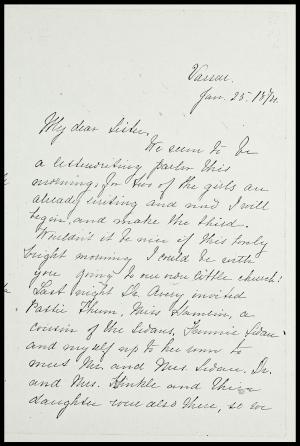 Vassar.
Jan. 25. 1874.
My dear Sister,
We seem to be
a letterwriting parlor this
morning, for two of the girls are
already writing and now I will
begin, and make the third.
Wouldn't it be nice if this lovely
bright morning I could be with
you going to our own little church!
Last night Dr. Avery invited
Katie Miss Hamlin, a
cousin of the Sedans, Fannie Sedan
and myself up to her room to
meet Mr. and Mrs. Sedan. Dr.
and Mrs. Hinkle and their
daughter were also there, so we